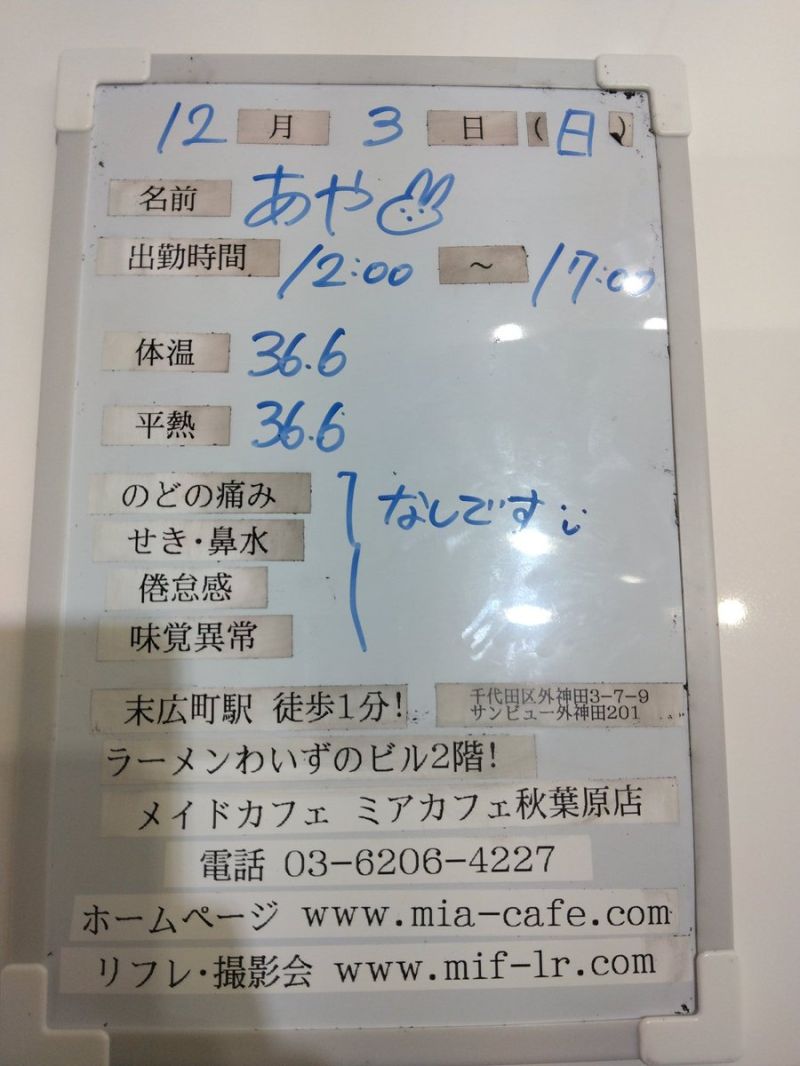 12月3日(日)
名前 あや
出勤時間 12:00 ～ 17:00
体温 36.6
平熱 36.6
のどの痛み
せき・鼻水
倦怠感
味覚異常
なしです
末広町駅 徒歩1分!
千代田区外神田3-7-9
サンビュー外神田201
ラーメンわいずのビル2階!
メイドカフェ ミアカフェ秋葉原店
電話 03-6206-4227
ホームページ www.mia-cafe.com
リフレ・撮影会 www.mif-lr.com